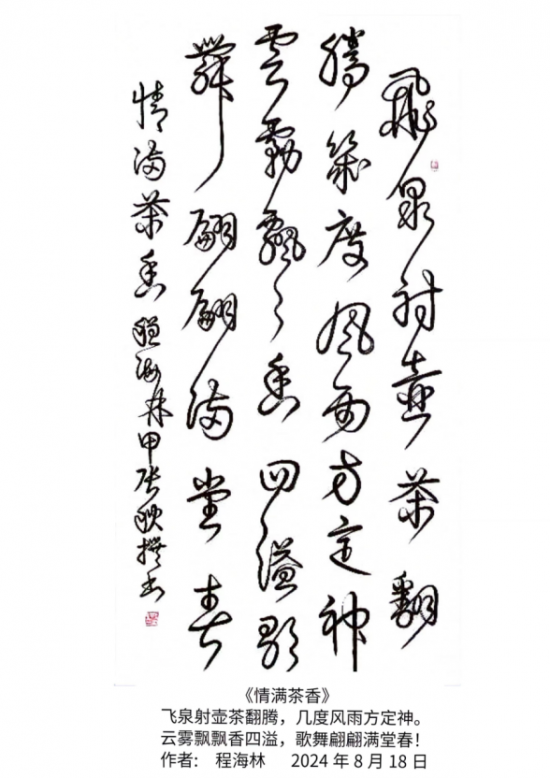 飛泉射壺茶翻
騰幾度風雨方定神
雲霧飄々香四溢歌
舞翩翩满堂春
情满茶香 程海林甲辰秋撰书
《情满茶香》
飞泉射壶茶翻腾，几度风雨方定神。
云雾飘飘香四溢，歌舞翩翩满堂春！
作者： 程海林 2024 年 8 月 18 日